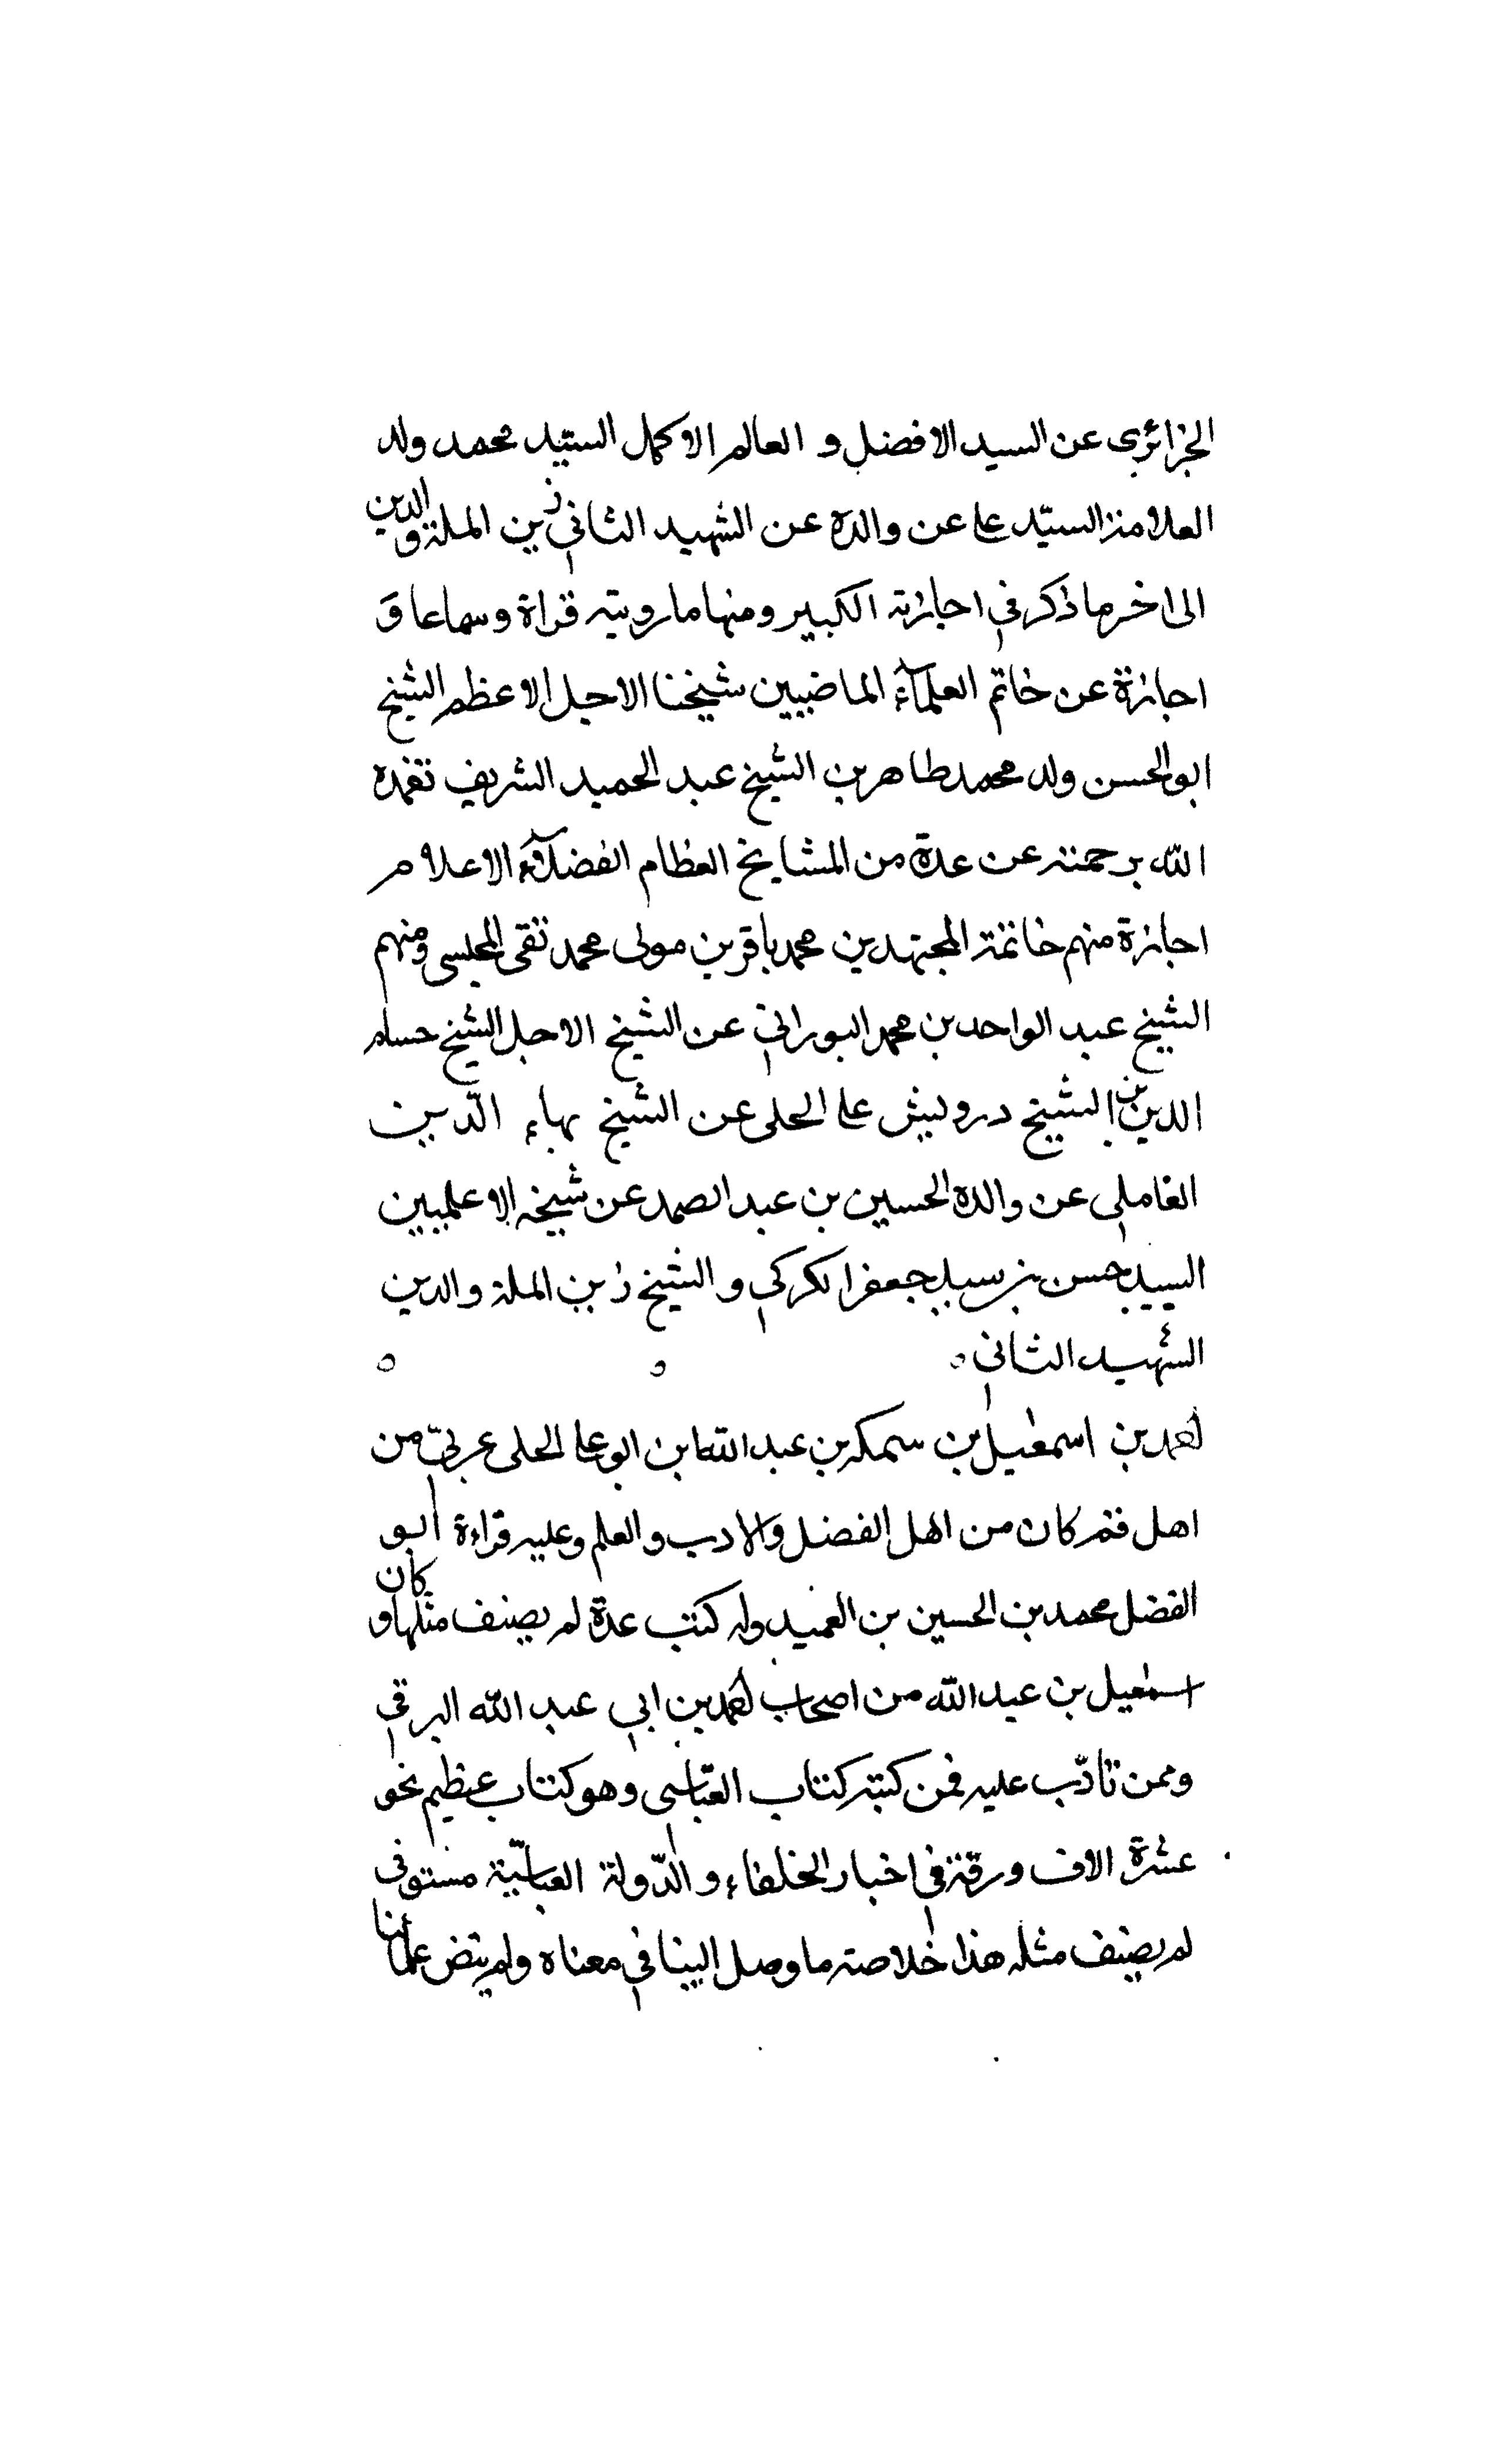 الجزائرى عن السيد الافضل و العالم الاكمل السيّد محمد ولد
العلامة السيّد على عن والده عن الشهيد الثانى زين الملة والدين
الى اخر ما ذكر فى اجازته الكبير ومنها ما رويته قراة وسماعا وَ
اجازة عن خاتم العلمآء الماضيين شيخنا الاجل الاعظم الشيخ
ابو الحسن ولد محمد طاهر بن الشيخ عبد الحميد الشريف تغمده
الله برحمته عن عدة من المشايخ العظام الفضلآء الاعلام
اجازة منهم خاتمة المجتهدين محمد باقر بن مولى محمد تقى المجلسى ومنهم
الشيخ عبد الواحد بن محمد البورانى عن الشيخ الاجل الشيخ حسام
الدين بن الشيخ درويش على الحلى عن الشيخ بهاء الدّين
العاملى عن والده الحسين بن عبد الصمد عن شيخه الاعلميين
السيد حسن بن سيد جعفر الكركى و الشيخ زين الملة والدين
الشهيد الثانى ه ه ه
احمد بن اسمعيل بن سمكه بن عبد الله ابن ابو على الحلى عربىّ من
اهل قم كان من اهل الفضل والادب و العلم وعليه قراءة ابو
الفضل محمد بن الحسين بن العميد وله كتب عدة لم يصنف مثلها و كان
اسمعيل بن عبد الله من اصحاب احمد بن ابى عبد الله البرقى
وممن تادّب عليه فمن كتبه كتاب العبّاسى وهو كتاب عظيم نحو
عشرة الاف ورقة فى اخبار الخلفاء و الدّولة العباسيّة مستوفى
لم يصنف مثله هذا خلاصة ما وصل الينا فى معناه ولم ينض علمائنا